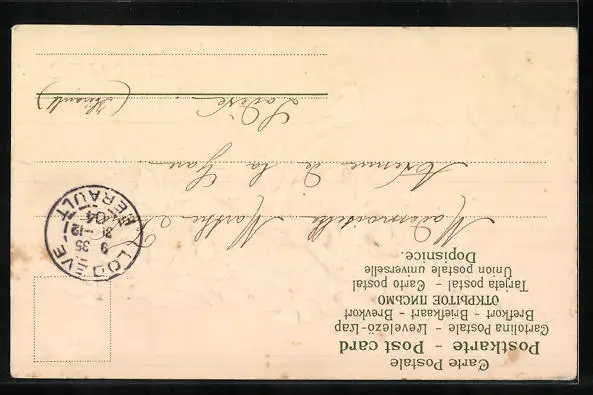 Carte Postale
Postkarte - Post card
Cartolina Postale - Levelező-Lap
Brefkort - Briefkaart - Brevkort
ОТКРЫТОЕ ПИСЬМО
Tarjeta postal - Carto postal
Union postale universelle
Dopisnice.
LODÈVE
9 35
21-12
04
HÉRAULT
Mademoiselle Marthe
Avenue de la Gare
Lodève
(Hérault)